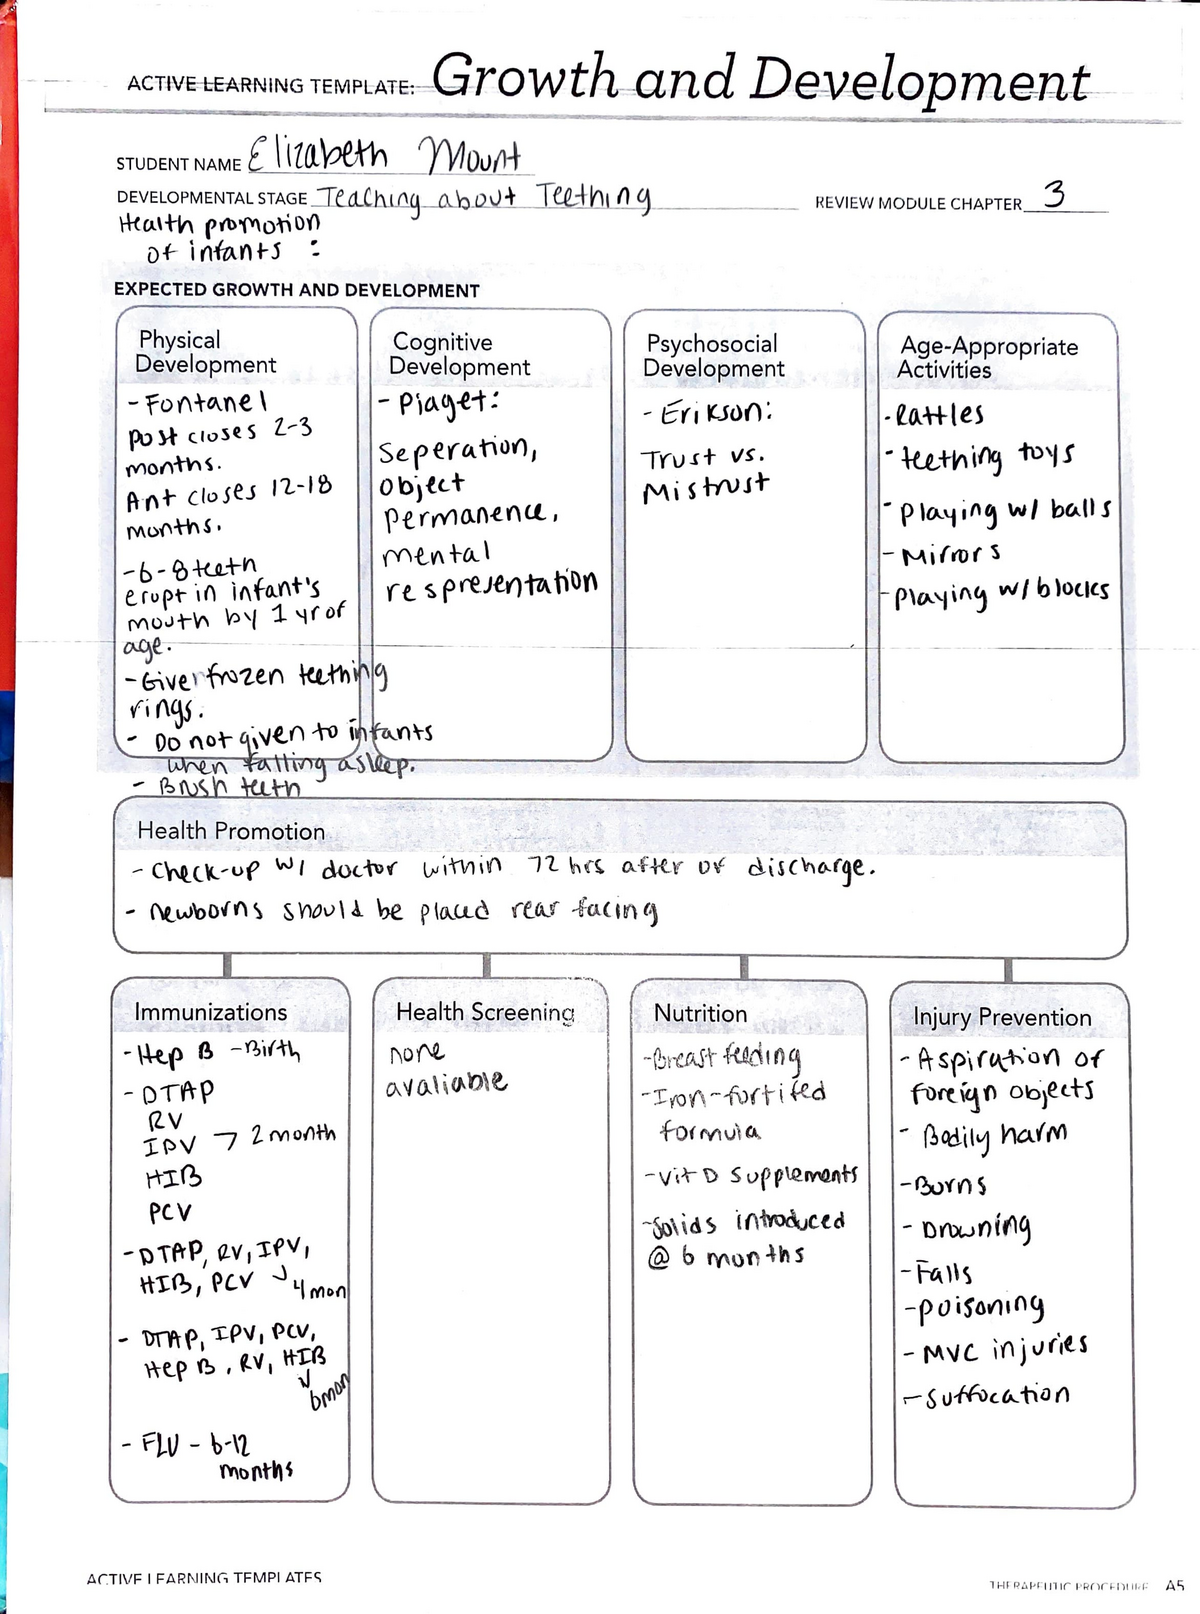 ACTIVE LEARNING TEMPLATE: Growth and Development
STUDENT NAME Elizabeth Mount
DEVELOPMENTAL STAGE Teaching about Teething
REVIEW MODULE CHAPTER 3
Health promotion
of infants :
EXPECTED GROWTH AND DEVELOPMENT
Physical
Development
- Fontanel
post closes 2-3
months.
Ant closes 12-18
months.
- 6-8 teeth
erupt in infant's
mouth by 1 yr of
age.
- Give frozen teething
rings.
- Do not given to infants
when falling asleep.
- Brush teeth
Cognitive
Development
- Piaget:
Seperation,
object
permanence,
mental
respresentation
Psychosocial
Development
- Erikson:
Trust vs.
Mistrust
Age-Appropriate
Activities
- Rattles
- teething toys
- playing w/ balls
- Mirrors
- playing w/ blocks
Health Promotion
- Check-up w/ doctor within 72 hrs after of discharge.
- newborns should be placed rear facing
Immunizations
- Hep B - Birth
- DTAP
RV
IPV → 2 month
HIB
PCV
- DTAP, RV, IPV,
HIB, PCV ↘ 4 mon
- DTAP, IPV, PCV,
Hep B, RV, HIB
↓
6mon
- FLU - 6-12
months
Health Screening
none
avaliable
Nutrition
- Breast feeding
- Iron-fortifed
formula
- Vit D supplements
- Solids introduced
@ 6 months
Injury Prevention
- Aspiration of
foreign objects
- Bodily harm
- Burns
- Drowning
- Falls
- poisoning
- MVC injuries
- Suffocation
ACTIVE LEARNING TEMPLATES
THERAPEUTIC PROCEDURE A5